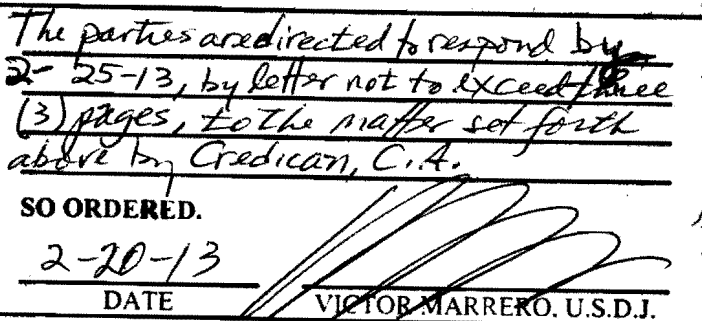 The parties are directed to respond by
2-25-13, by letter not to exceed three
(3) pages, to the matter set forth
above by Credican, C.A.
SO ORDERED.
2-20-13
DATE VICTOR MARRERO. U.S.D.J.